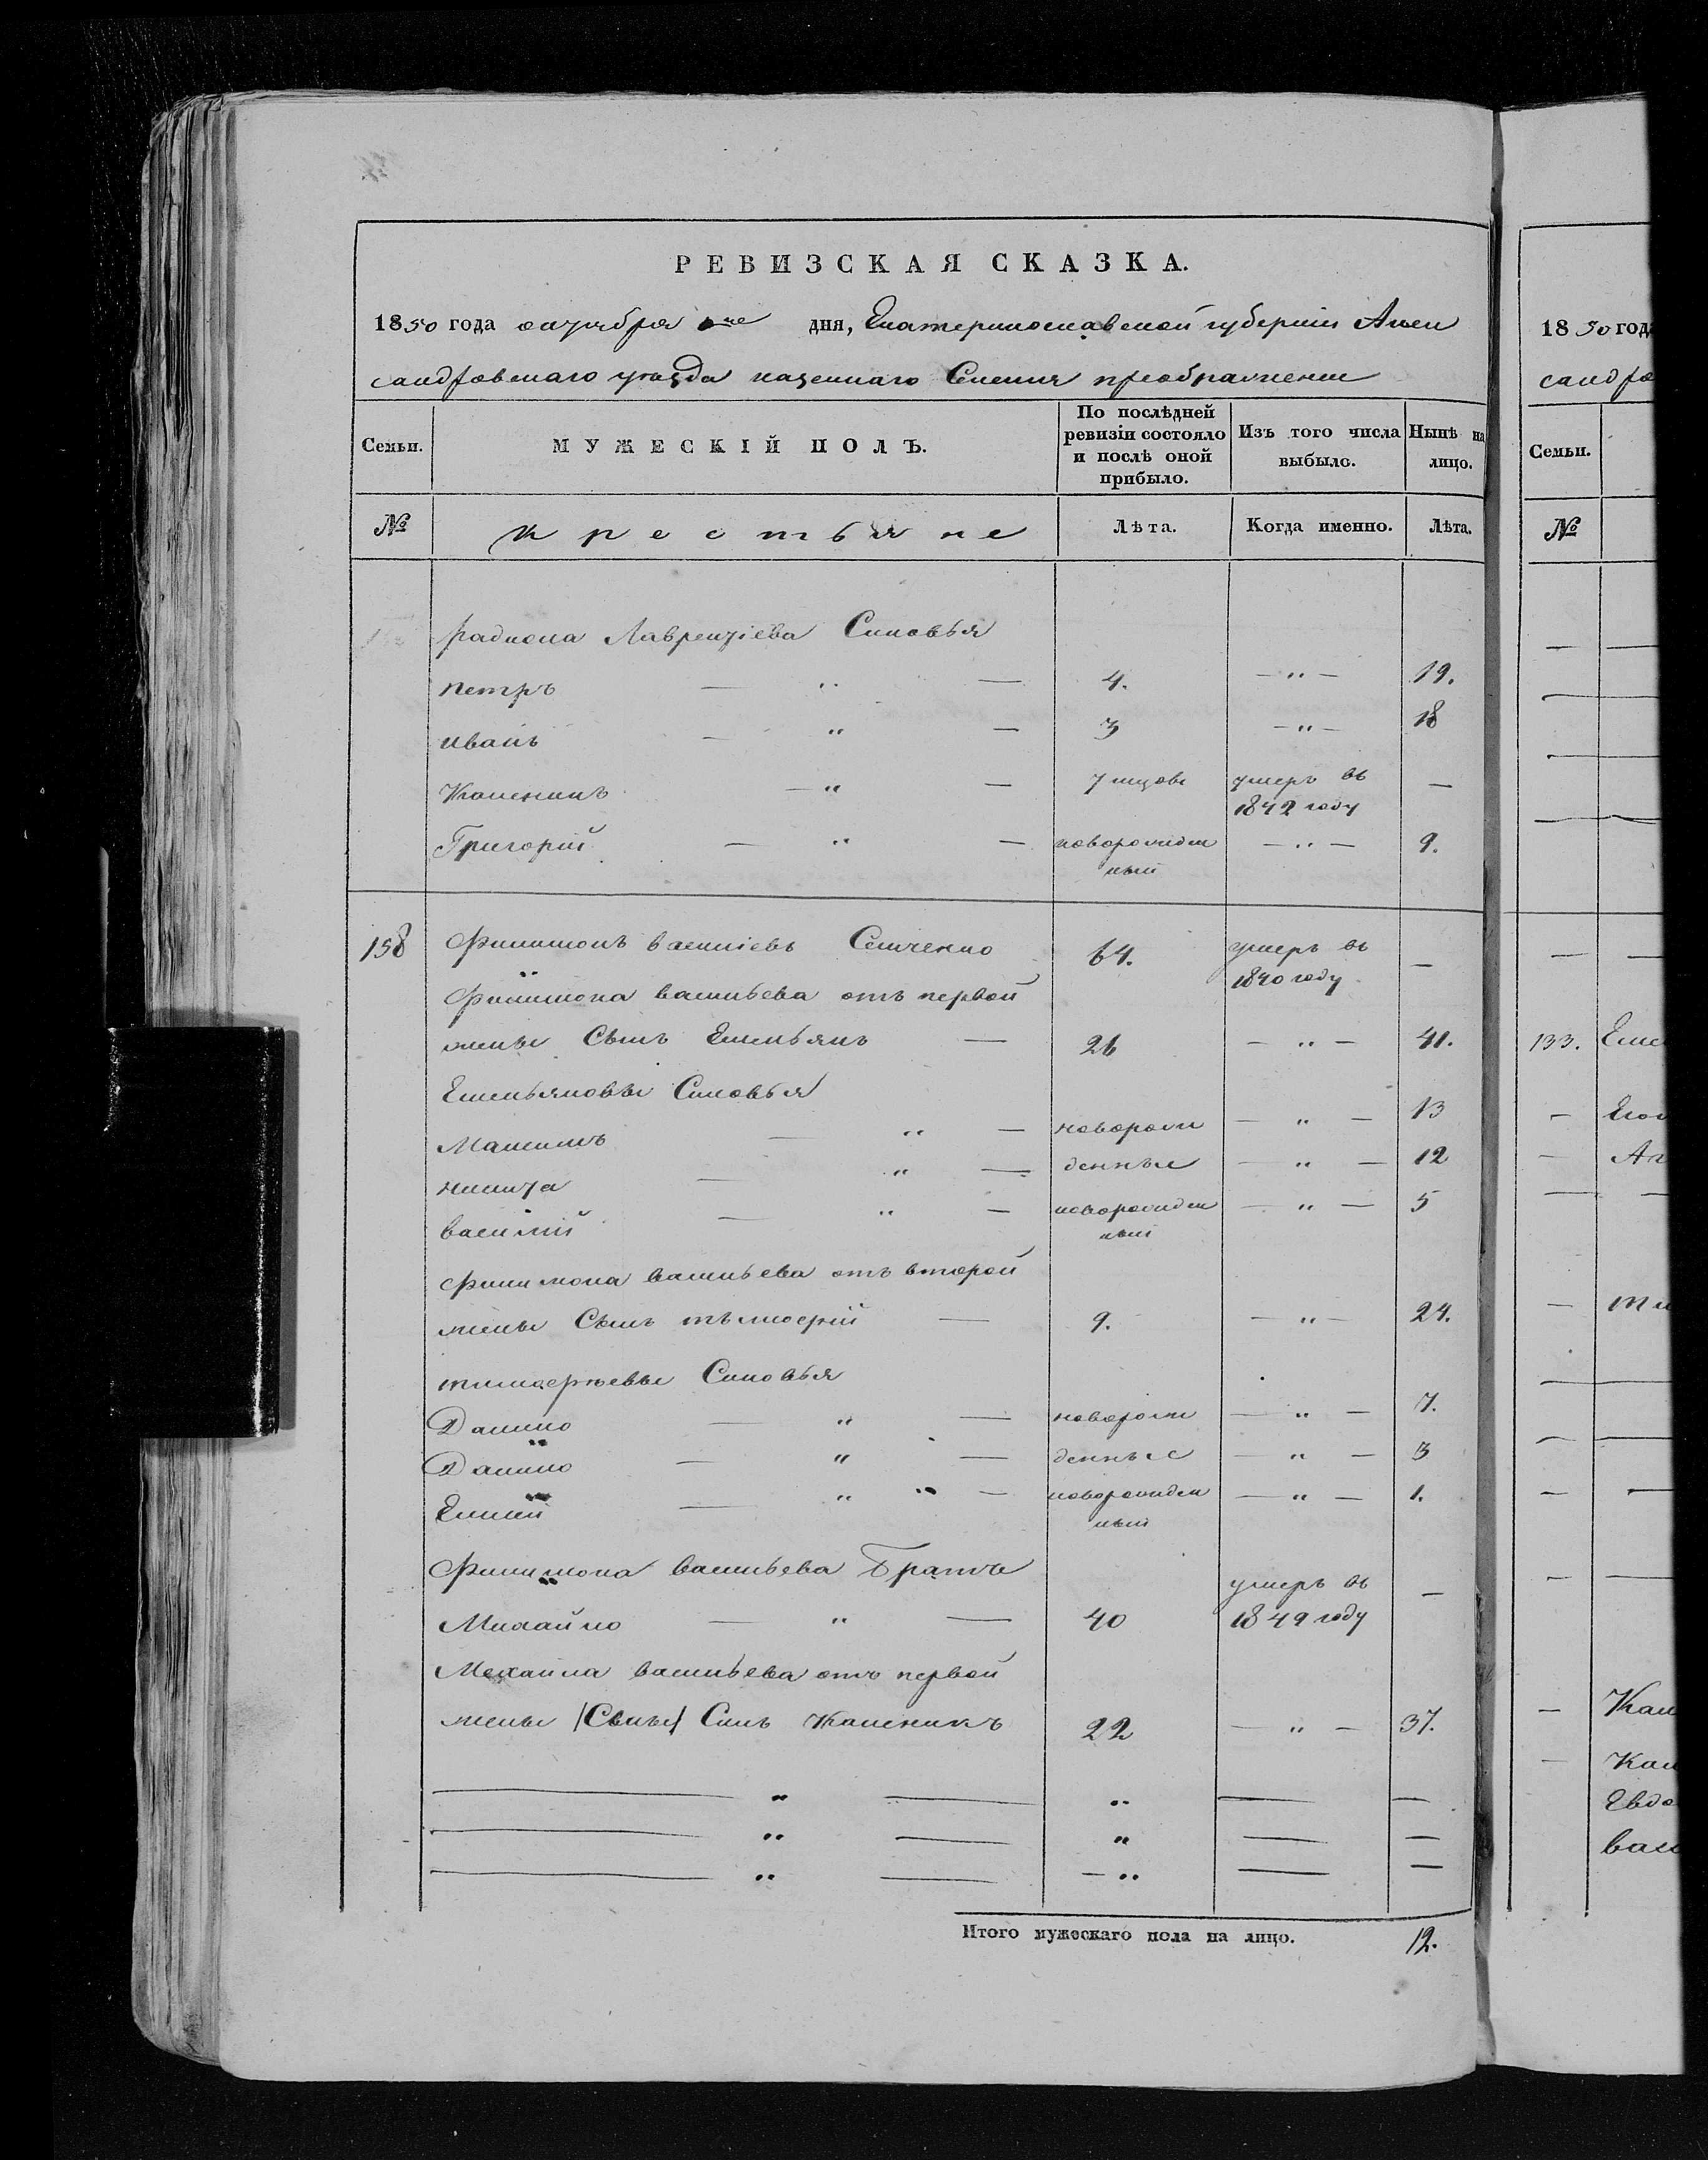 РЕВИЗСКАЯ СКАЗКА.
1850 года октября дня, Екатеринославской губерніи Алек
сандровскаго уезда казеннаго Селения преображенки
Семьи.
МУЖЕСКІЙ ПОЛЪ.
По послѣдней ревизіи состояло и послѣ оной прибыло.
Изъ того числа выбыло.
Нынѣ на лицо.
№ крестьяне Лѣта. Когда именно. Лѣта.
радиона Лаврентіева Синовья
петръ — " — 4. — " — 19.
иванъ — " — 3 — " — 18
Каленикъ — " — умеръ въ 1842 году —
Григорій — " — новорожден ный — " — 9.
158 Филимонъ василіевъ Семченко 64. умеръ въ 1840 году —
Филимона васильева отъ первой
жены Сынъ Емельянъ — 26 — " — 41.
Емельяновы Синовья
Максимъ — " — новорож — " — 13
никита — " — денные — " — 12
василій — " — новорожден ный — " — 5
Филимона васильева отъ второй
жены Сынъ тимофей — 9. — " — 24.
тимофеевы Синовья
Данило — " — новорож — " — 7.
Данило — " — денные — " — 3
Елисей — " — новорожден ный — " — 1.
Филимона васильева Братъ
Михайло — " — 40 умеръ въ 1849 году —
Михаила васильева отъ первой
жены Синъ Каленикъ 22 — " — 37.
— " — " — —
— " — " — —
— " — " — —
Итого мужескаго пола на лицо. 12.
1850 год
сандро
Семьи.
№
133. Еме